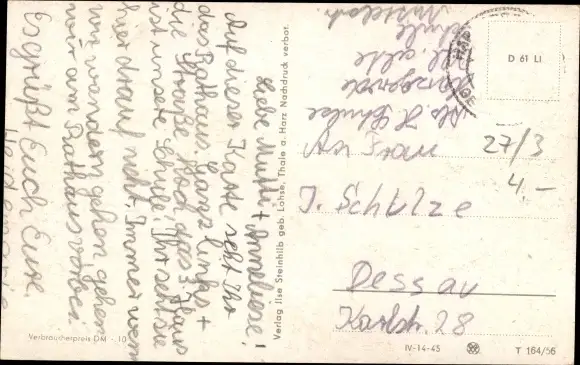 Liebe Mutti + Anneliese!
Auf dieser Karte seht Ihr
das Rathaus. Ganz links +
die Straße hoch das 2. Haus
ist unsere Schule! Ihr seht sie
hier drauf nicht. Immer wenn
wir wandern gehen, gehen
wir am Rathaus vorbei.
Es grüßt Euch Eure
Verbraucherpreis DM -.10
Verlag Ilse Steinhilb geb. Lohse, Thale a. Harz Nachdruck verbot.
Abs. H. Schulze
Schule
D 61 LI
An Frau
27/3
4.-
I. Schulze
Dessau
Karlstr. 28
IV-14-45
T 164/56